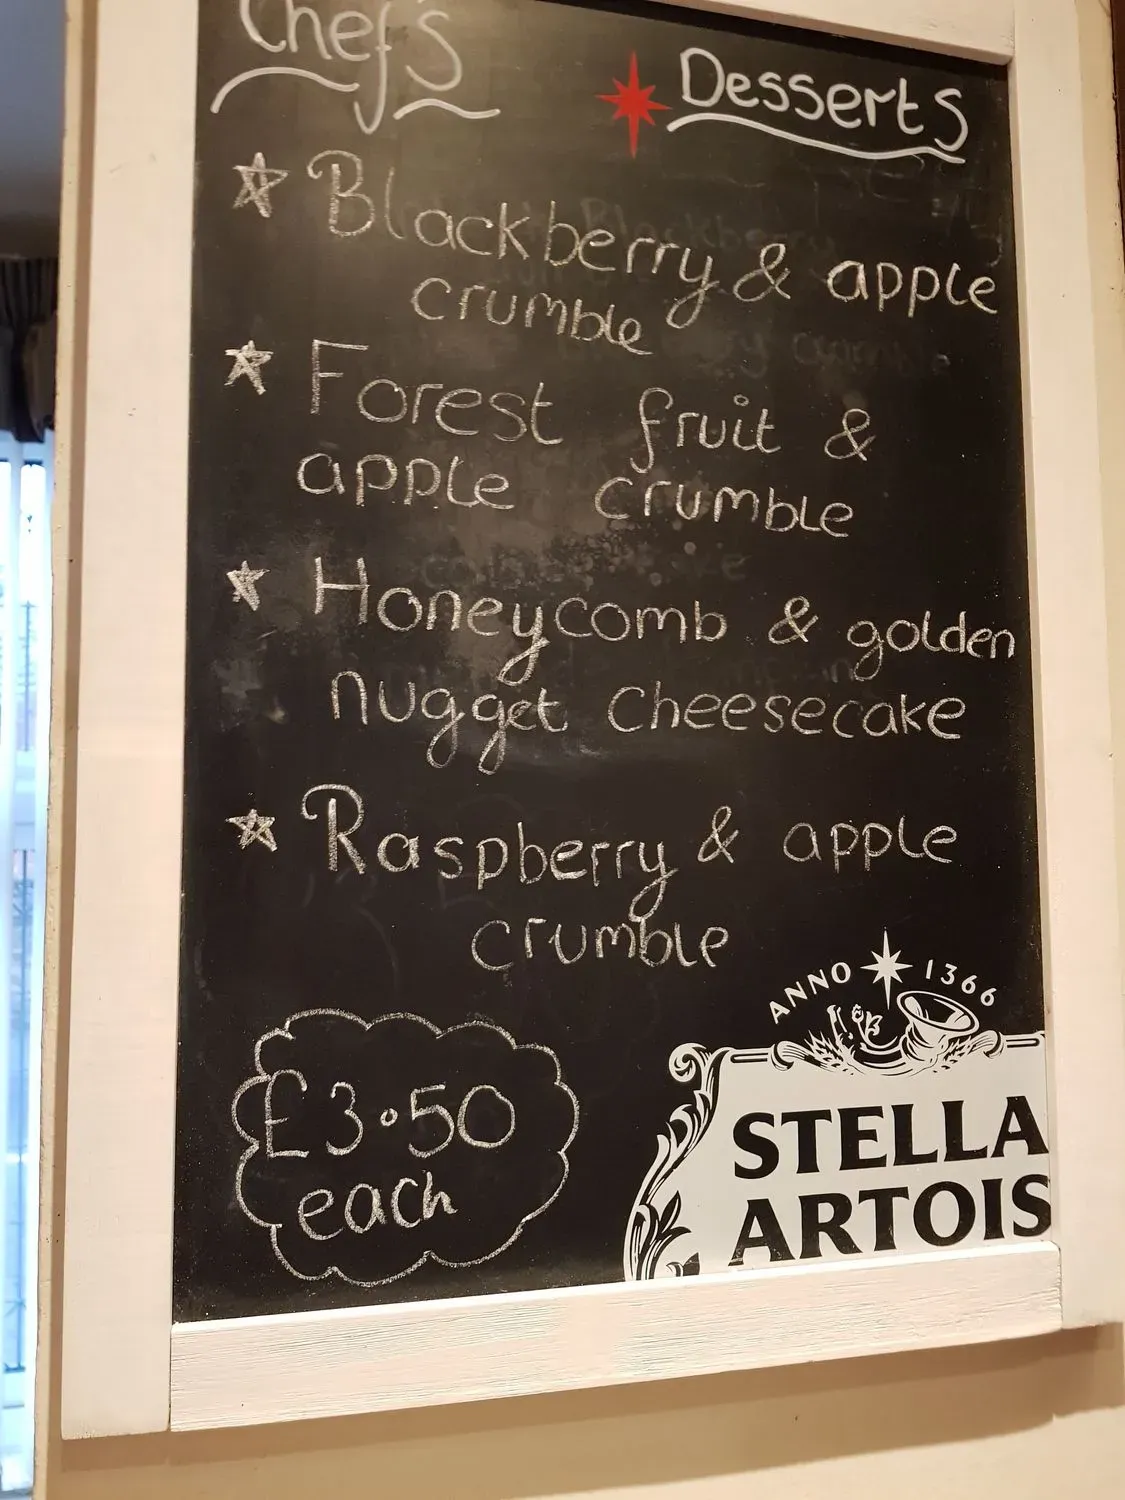 Chef's Desserts
Blackberry & apple
crumble
Forest fruit &
apple crumble
Honeycomb & golden
nugget cheesecake
Raspberry & apple
crumble
£3.50
each
ANNO 1366
STELLA
ARTOIS